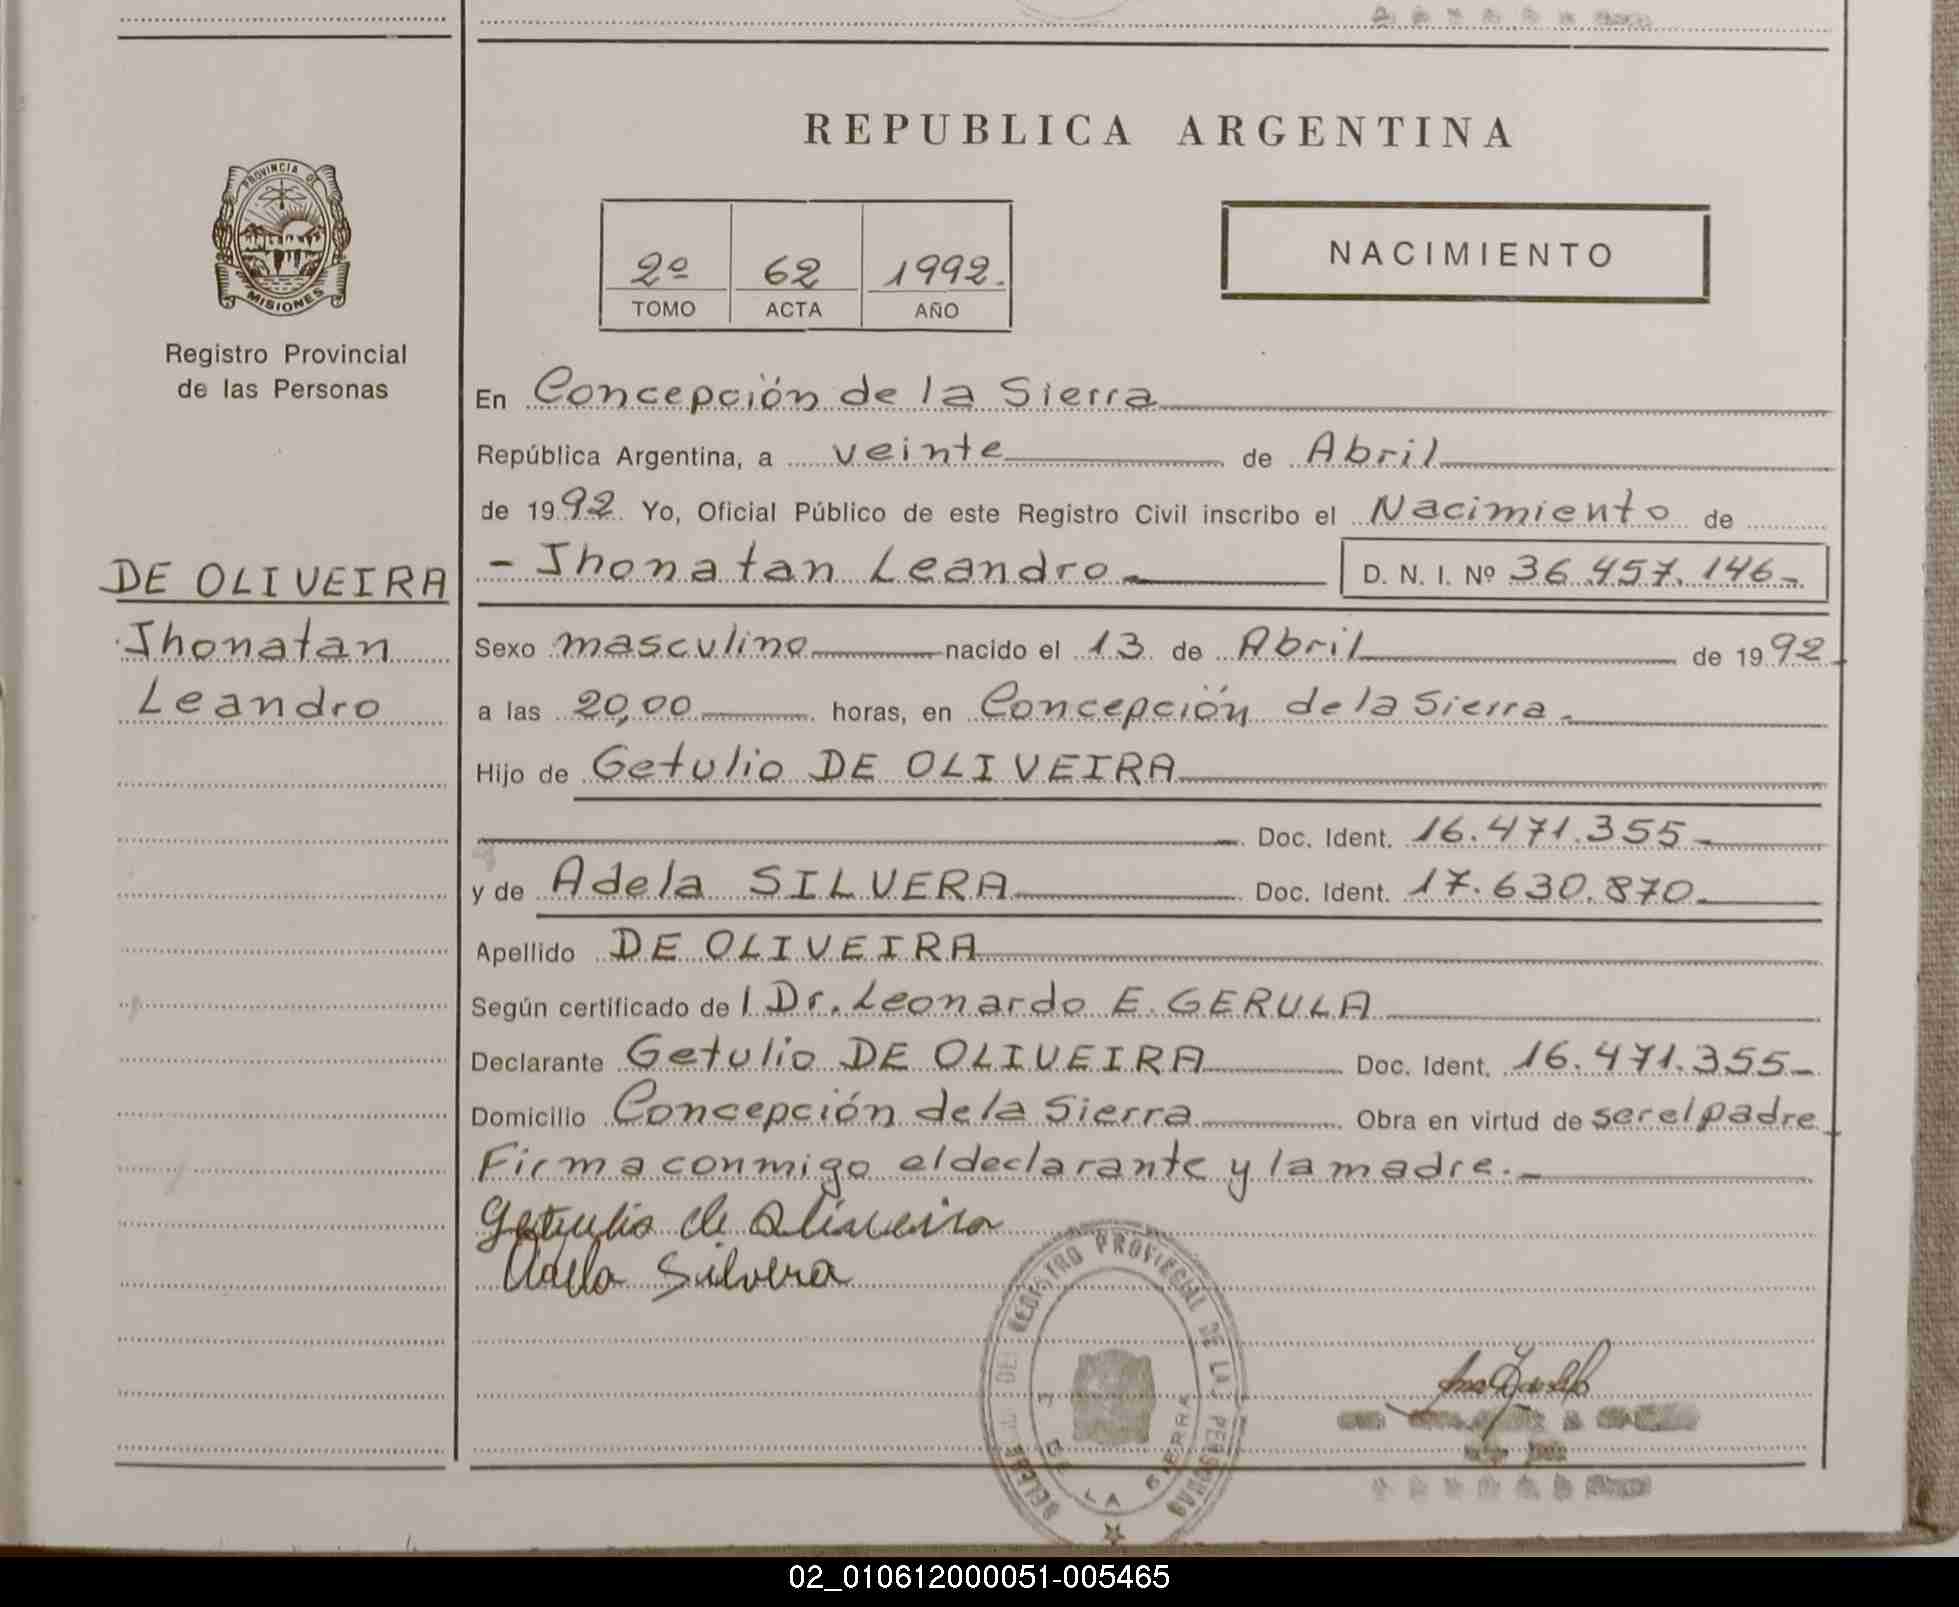 REPUBLICA ARGENTINA
PROVINCIA DE
MISIONES
Registro Provincial
de las Personas
DE OLIVEIRA
Jhonatan
Leandro
2º 62 1992.
TOMO ACTA AÑO
NACIMIENTO
En Concepción de la Sierra
República Argentina, a veinte de Abril
de 1992. Yo, Oficial Público de este Registro Civil inscribo el Nacimiento de
- Jhonatan Leandro. D. N. I. Nº 36.457.146-
Sexo masculino nacido el 13 de Abril de 1992
a las 20,00 horas, en Concepción de la Sierra.
Hijo de Getulio DE OLIVEIRA
Doc. Ident. 16.471.355
y de Adela SILVERA Doc. Ident. 17.630.870.
Apellido DE OLIVEIRA
Según certificado de l Dr. Leonardo E. GERULA
Declarante Getulio DE OLIVEIRA Doc. Ident. 16.471.355-
Domicilio Concepción de la Sierra Obra en virtud de ser el padre
Firma conmigo el declarante y la madre.-
Getulio de Oliveira
Adela Silvera
REGISTRO PROVINCIAL DE LAS PERSONAS
DE LA SIERRA
02_010612000051-005465